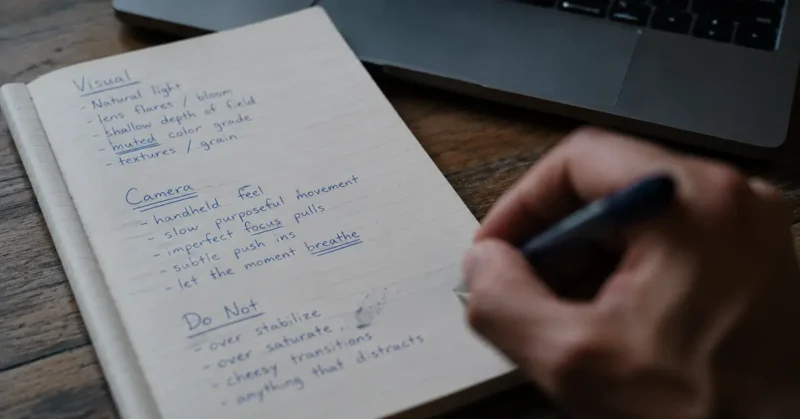 Visual
- Natural light
- lens flares / bloom
- shallow depth of field
- muted color grade
- textures / grain
Camera
- handheld feel
- slow purposeful movement
- imperfect focus pulls
- subtle push ins
- let the moment breathe
Do Not
- over stabilize
- over saturate
- cheesy transitions
- anything that distracts